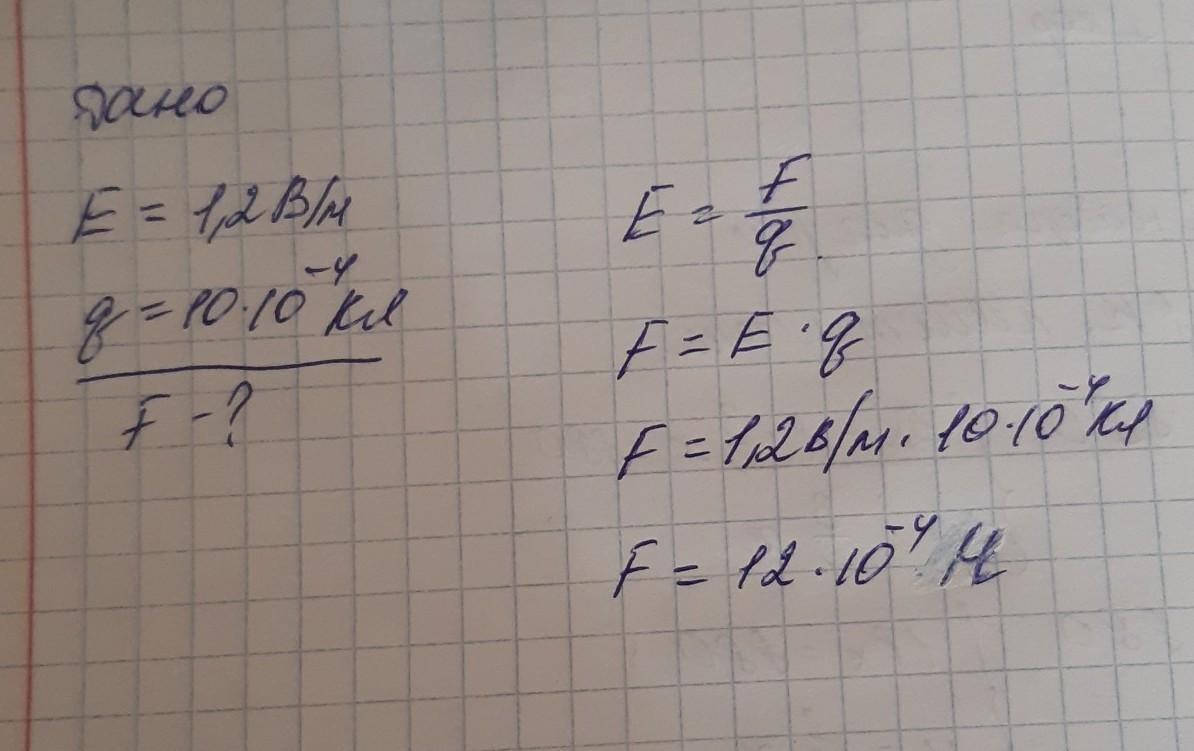 Дано
E = 1,2 В/м
q = 10·10⁻⁴ Кл
F - ?
E = F/q
F = E · q
F = 1,2 В/м · 10·10⁻⁴ Кл
F = 12·10⁻⁴ Н